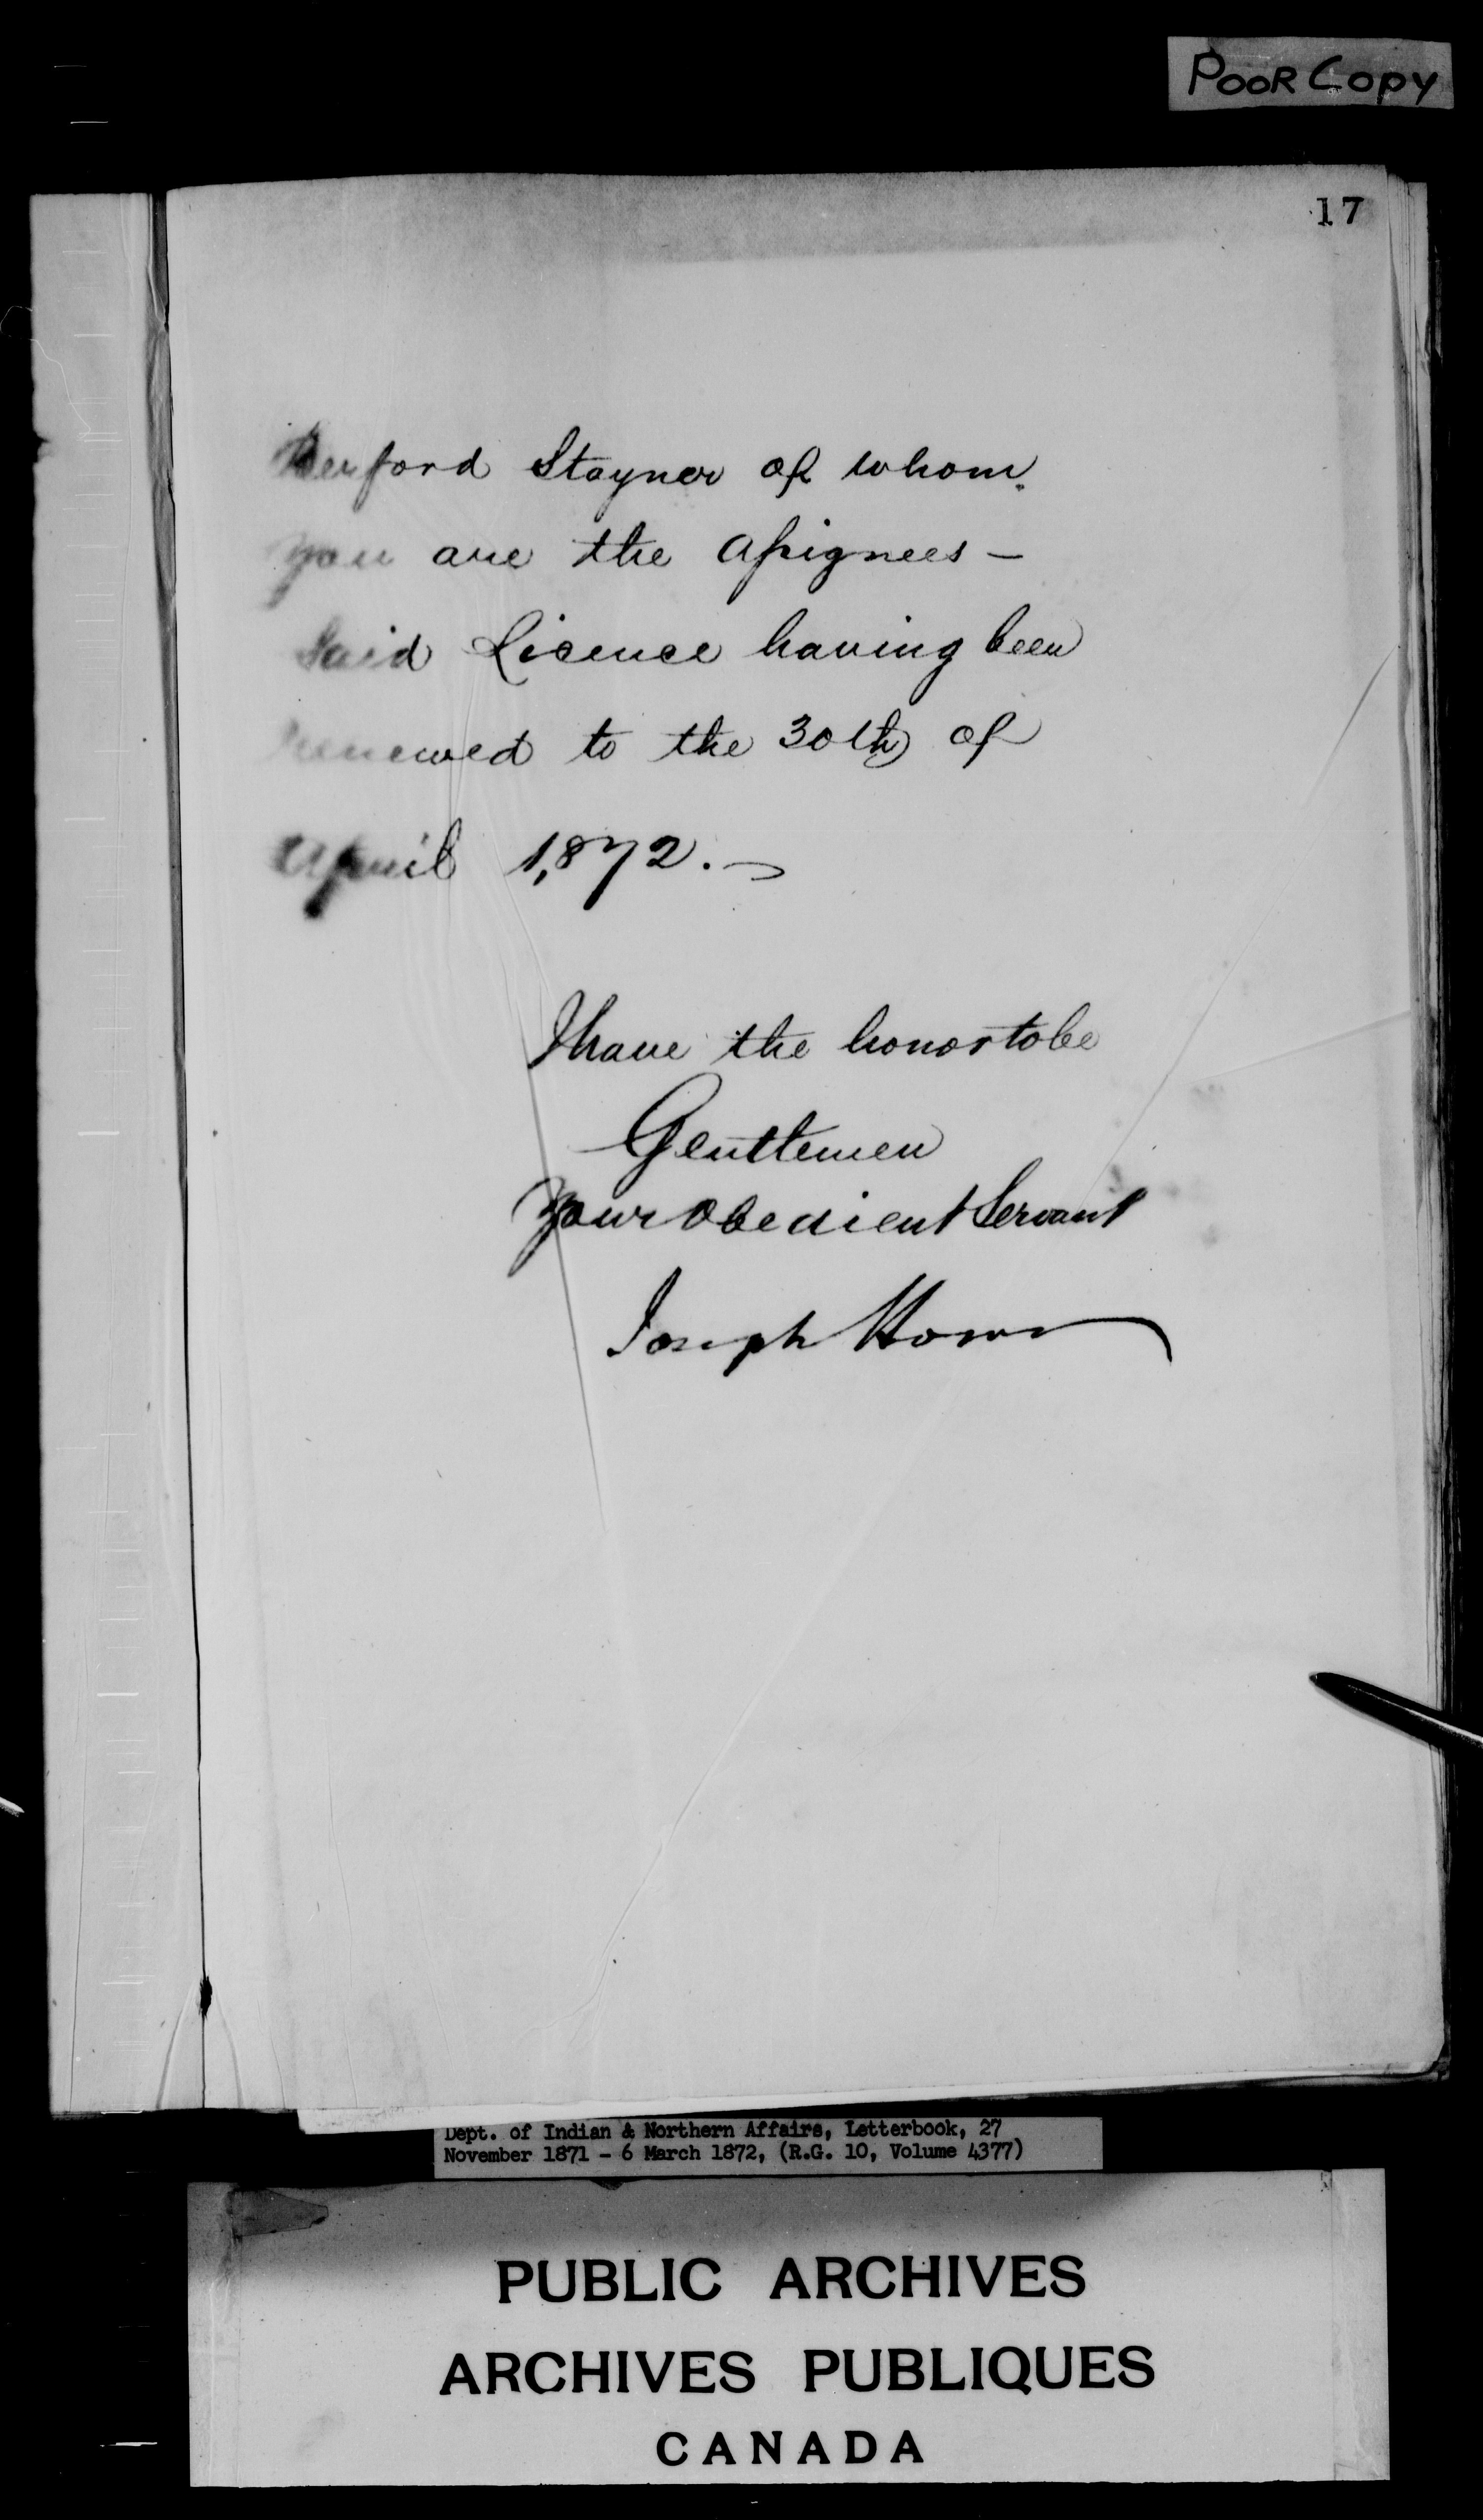 POOR COPY
17
Stayner of whom
you are the Assignees –
Said Licence having been
renewed to the 30th of
April 1,872. –
I have the honor to be
Gentlemen
Your Obedient Servant
Joseph Howe
Dept. of Indian & Northern Affairs, Letterbook, 27
November 1871 - 6 March 1872, (R.G. 10, Volume 4377)
PUBLIC ARCHIVES
ARCHIVES PUBLIQUES
CANADA